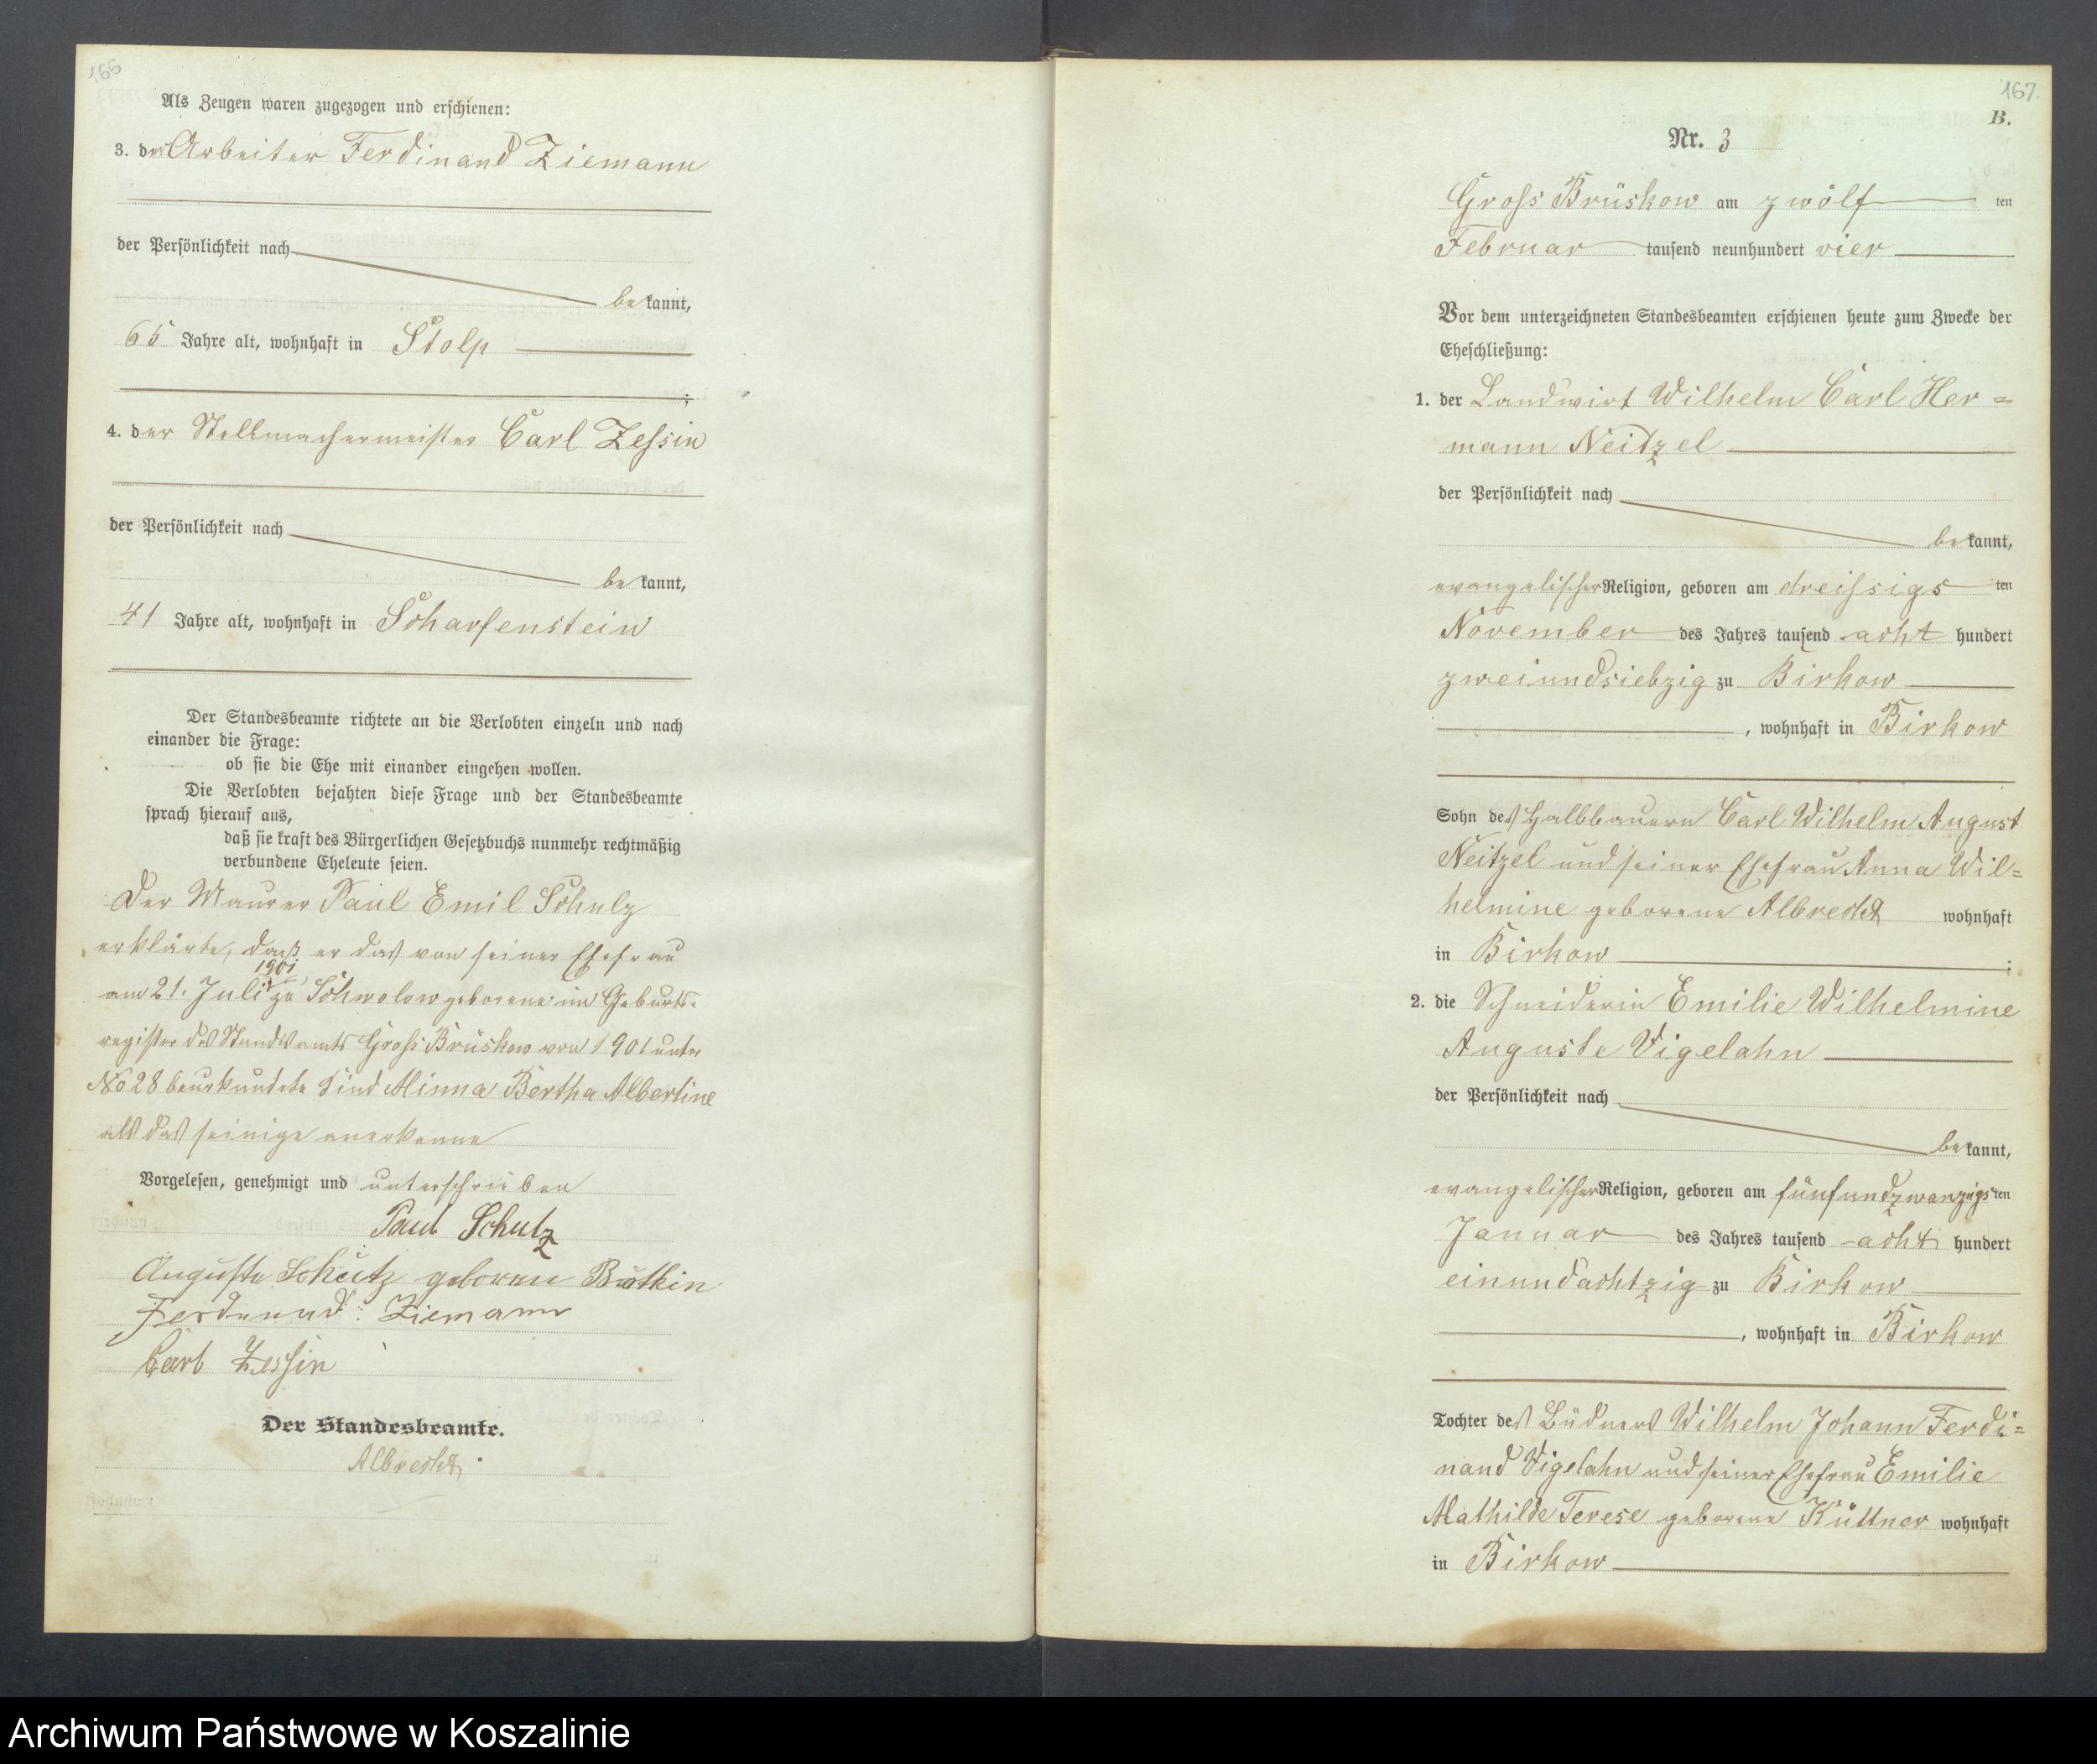 166
Als Zeugen waren zugezogen und erschienen:
3. der Arbeiter Ferdinand Ziemann
der Persönlichkeit nach
be kannt,
65 Jahre alt, wohnhaft in Stolp
;
4. der Stellmachermeister Carl Zessin
der Persönlichkeit nach
be kannt,
41 Jahre alt, wohnhaft in Scharfenstein
Der Standesbeamte richtete an die Verlobten einzeln und nach
einander die Frage:
ob sie die Ehe mit einander eingehen wollen.
Die Verlobten bejahten diese Frage und der Standesbeamte
sprach hierauf aus,
daß sie kraft des Bürgerlichen Gesetzbuchs nunmehr rechtmäßig
verbundene Eheleute seien.
Der Maurer Paul Emil Schulz
erklärte, daß er das von seiner Ehefrau
1901
am 21. Juli zu Schwolow geborene im Geburts-
register des Standesamts Gross Brüskow von 1901 unter
No 28 beurkundete Kind Minna Bertha Albertine
als das seinige anerkenne
Vorgelesen, genehmigt und unterschrieben
Paul Schulz
Auguste Schulz geboren
Ferdinand Ziemann
Carl Zessin
Der Standesbeamte.
Albrecht.
167.
B.
Nr. 3
Gross Brüskow am zwölf ten
Februar tausend neunhundert vier
Vor dem unterzeichneten Standesbeamten erschienen heute zum Zwecke der
Eheschließung:
1. der Landwirt Wilhelm Carl Her=
mann Neitzel
der Persönlichkeit nach
be kannt,
evangelischer Religion, geboren am dreissigs ten
November des Jahres tausend acht hundert
zweiundsiebzig zu Birkow
, wohnhaft in Birkow
Sohn des Halbbauern Carl Wilhelm August
Neitzel und seiner Ehefrau Anna Wil=
helmine geborene Albrecht wohnhaft
in Birkow ;
2. die Schneiderin Emilie Wilhelmine
Auguste Vigelahn
der Persönlichkeit nach
be kannt,
evangelischer Religion, geboren am fünfundzwanzigs ten
Januar des Jahres tausend acht hundert
einundachtzig zu Birkow
, wohnhaft in Birkow
Tochter des Büdners Wilhelm Johann Ferdi=
nand Vigelahn und seiner Ehefrau Emilie
Mathilde Terese geborene Küttner wohnhaft
in Birkow
Archiwum Państwowe w Koszalinie